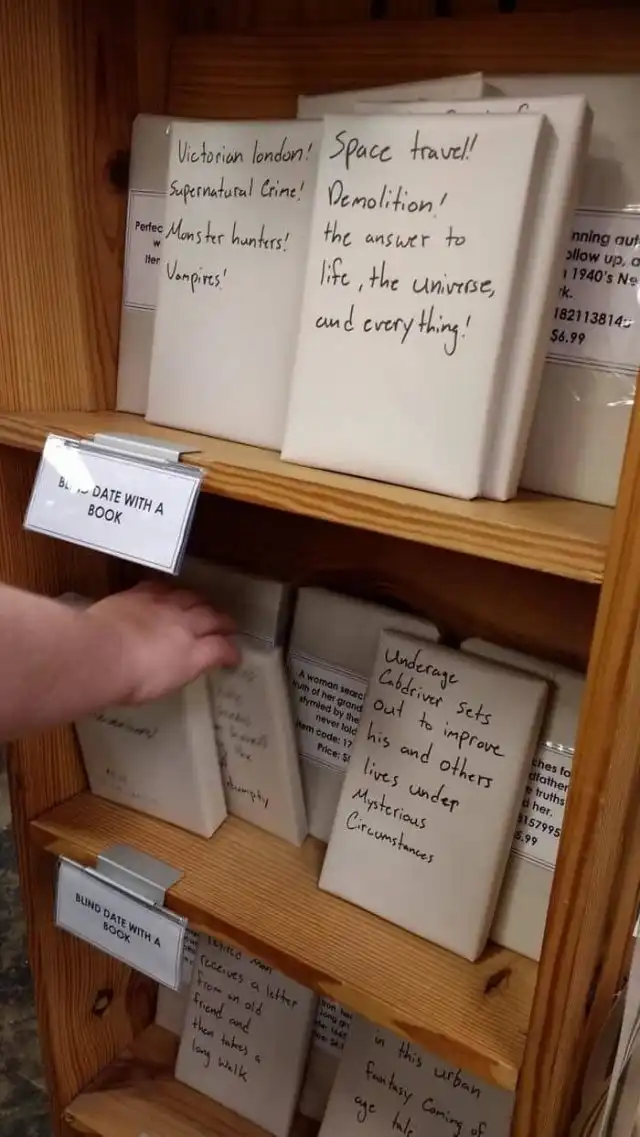 Victorian london!
Supernatural Crime!
Monster hunters!
Vampires!
Space travel!
Demolition!
the answer to
life, the universe,
and everything!
Perfec
w
Iter
nning aut
ollow up, a
1940's Ne
k.
182113814
$6.99
BLIND DATE WITH A
BOOK
A woman searc
uth of her grand
stymied by the
never told
Item code: 17
Price: $
Underage
Cabdriver sets
out to improve
his and others
lives under
Mysterious
Circumstances
ches fo
dfather
e truths
d her.
3157995
5.99
BLIND DATE WITH A
BOOK
man
receives a letter
from an old
friend and
then takes a
long walk
in this urban
fantasy coming of
age tale